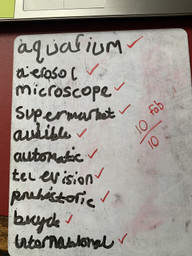 aquarium
aerosol
microscope
supermarket
audible
automatic
television
prehistoric
bicycle
international
10
10
fab